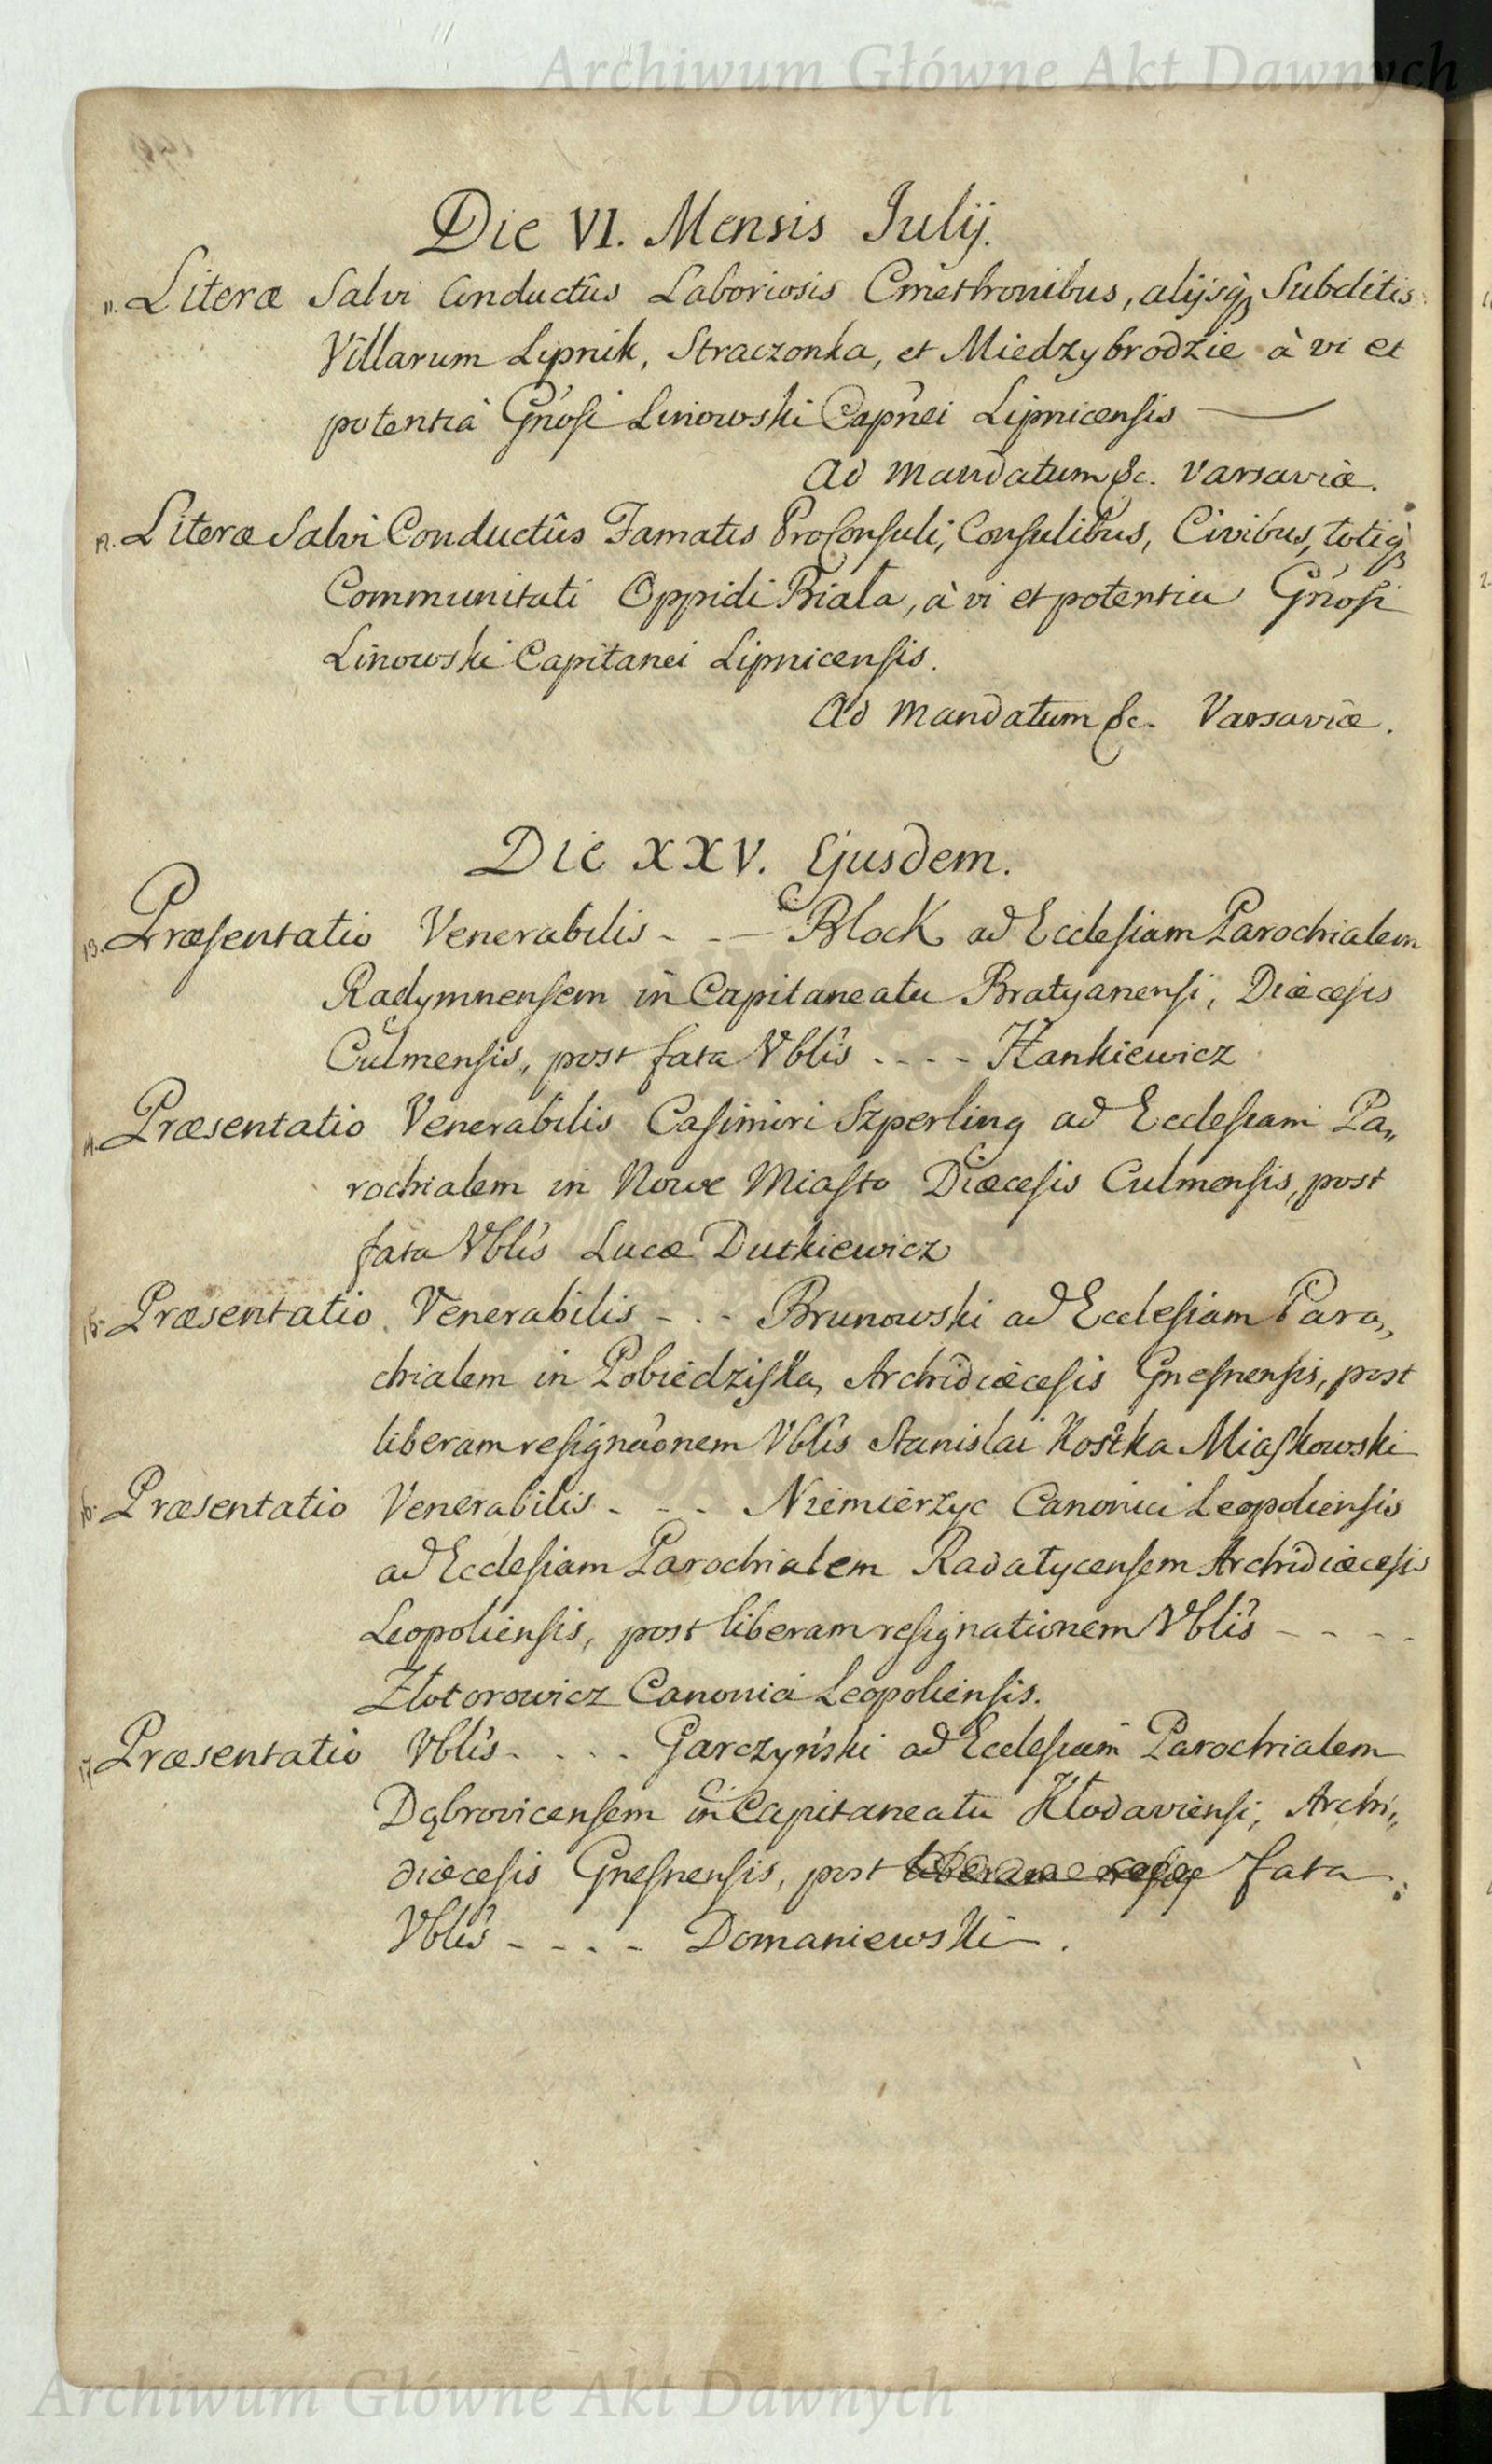 Archiwum Główne Akt Dawnych
Die VI. Mensis Julij.
11. Literæ Salvi Conductûs Laboriosis Cmethonibus, alijsq; Subditis
Villarum Lipnik, Straczonka, et Miedzybrodzie à vi et
potentiâ Gñosi Linowski Capñei Lipnicensis
Ad Mandatum &c. Varsaviæ.
12. Literæ Salvi Conductûs Famatis ProConsuli, Consulibus, Civibus, totiq;
Communitati Oppidi Biala, à vi et potentia Gñosi
Linowski Capitanei Lipnicensis.
Ad Mandatum &c. Varsaviæ.
Die XXV. Ejusdem.
13. Præsentatio Venerabilis - - - Block ad Ecclesiam Parochialem
Radymnensem in Capitaneatu Bratyanensi, Diæcesis
Culmensis, post fata Vblis - - - - Hankiewicz
14. Præsentatio Venerabilis Casimiri Szperling ad Ecclesiam Pa„
rochialem in Nowe Miasto Diæcesis Culmensis, post
fata Vblis Lucæ Dutkiewicz
15. Præsentatio Venerabilis - - - Brunowski ad Ecclesiam Paro„
chialem in Pobiedziska, Archidiæcesis Gnesnensis, post
liberam resignaõnem Vblis Stanislai Kostka Miaskowski
16. Præsentatio Venerabilis - - - Niemierzyc Canonici Leopoliensis
ad Ecclesiam Parochialem Radatycensem Archidiæcesis
Leopoliensis, post liberam resignationem Vblis - - - -
Zlotorowicz Canonici Leopoliensis.
17. Præsentatio Vblis - - - - Garczyński ad Ecclesiam Parochialem
Dąbrovicensem in Capitaneatu Kłodaviensi, Archi„
diæcesis Gnesnensis, post liberam resig fata
Vblis - - - - Domaniewski.
Archiwum Główne Akt Dawnych